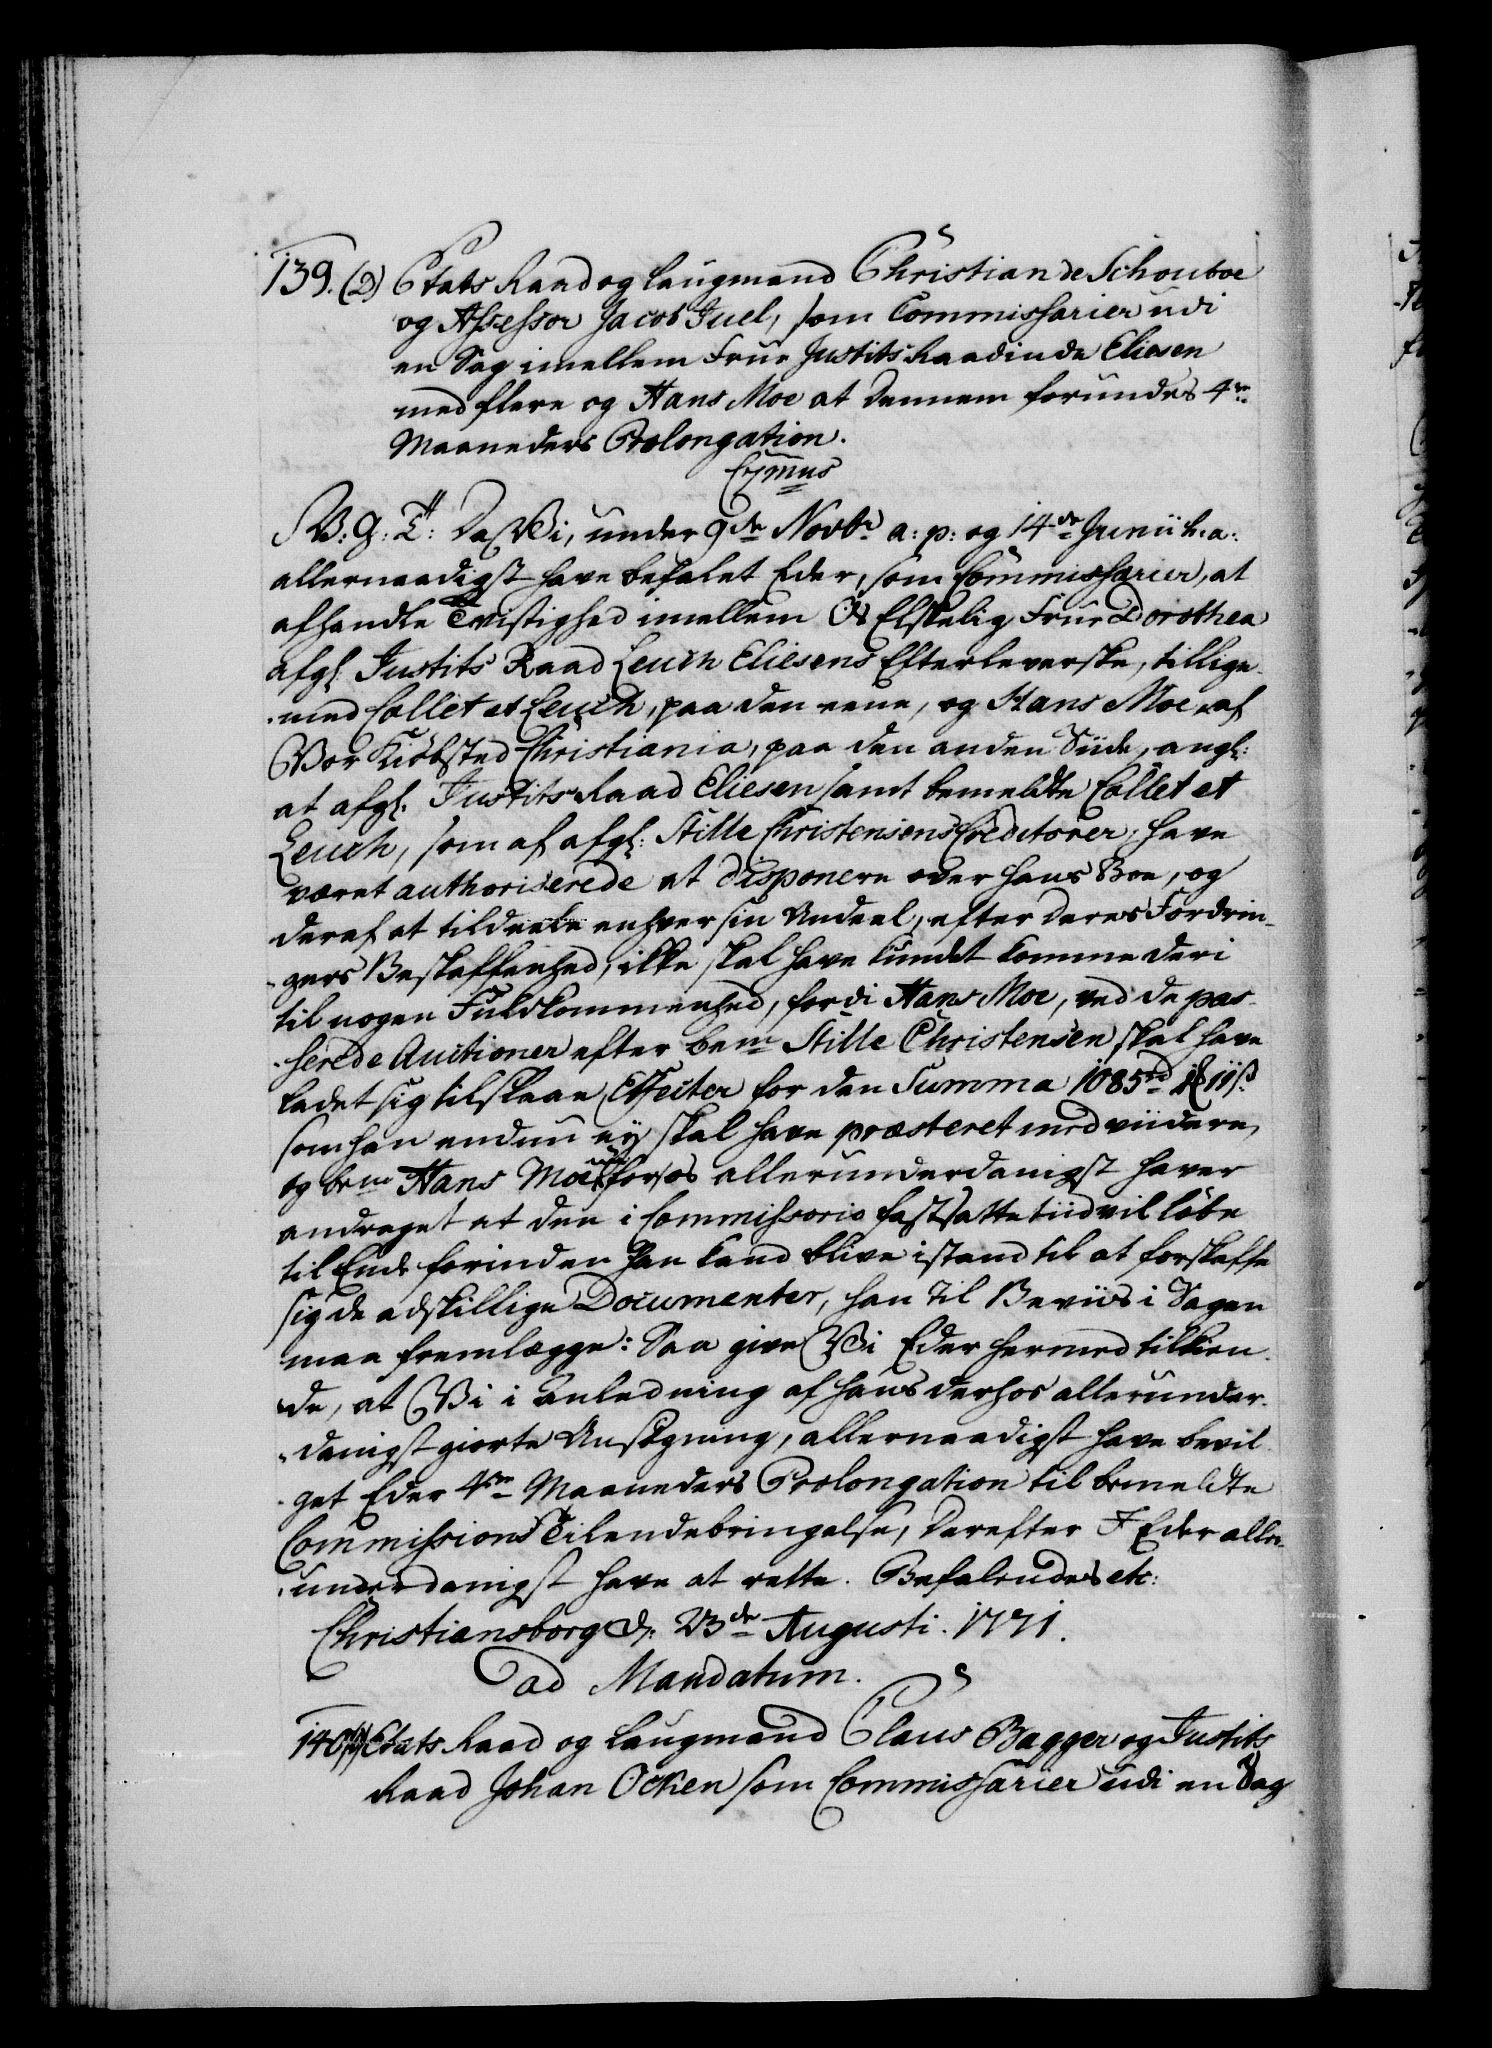 139. (2) Etats Raad og Laugmand Christian de Schouboe
og Assessor Jacob Juel, som Commissarier udi
en Sag imellem Frue Justits Raadinde Eliesen
med flere og Hans Moe at Dennem forundes 4re
Maaneders Prolongation.
C7mus
V: G: T: Da Vi, under 9de Novbr a: p: og 14de Junii h: a:
allernaadigst have befalet Eder, som Commissarier, at
afhandle Tvistighed imellem Os Elskelig Frue Dorothea
afgl. Justits Raad Leuch Eliesens Efterleverske, tillige
med Collet et Leuch, paa den eene, og Hans Moe, af
Vor Kiøbsted Christiania, paa den anden Siide, angl:
at afgl. Justits Raad Eliesen samt bemeldte Collet et
Leuch, som af afgl: Stille Christensens Creditorer, have
været authoriserede at disponere over hans Boe, og
deraf at tildeele enhver sin Andeel, efter deres Fordrin-
gers Beskaffenhed, ikke skal have kundet komme deri
til nogen Fuldkommenhed, fordi Hans Moe, ved de pas-
serede Auctioner efter bem. Stille Christensen skal have
ladet sig tilslaae Effecter for den Summa 1085rd 11 s.
som han endnu ey skal have præsteret med viidere,
og bem. Hans Moe nu for os allerunderdanigst haver
andraget at den i Commissorio fastsatte tiid vil løbe
til Ende forinden han kand blive istand til at forskaffe
sig de adskillige Documenter, han til Beviis i Sagen
maa fremlægge: Saa give Vi Eder hermed tilkien-
de, at Vi i Anledning af hans derhos allerunder-
danigst giorte Ansøgning, allernaadigst have bevil-
get Eder 4re Maaneders Prolongation til bemeldte
Commissions Tilendebringelse, derefter I Eder aller-
underdanigst have at rette. Befalendes etc:
Christiansborg d: 23de Augusti. 1771.
ad Mandatum.
140 Etats Raad og Laugmand Claus Bagger og Justits
Raad Johan Ocken som Commissarier udi en Sag